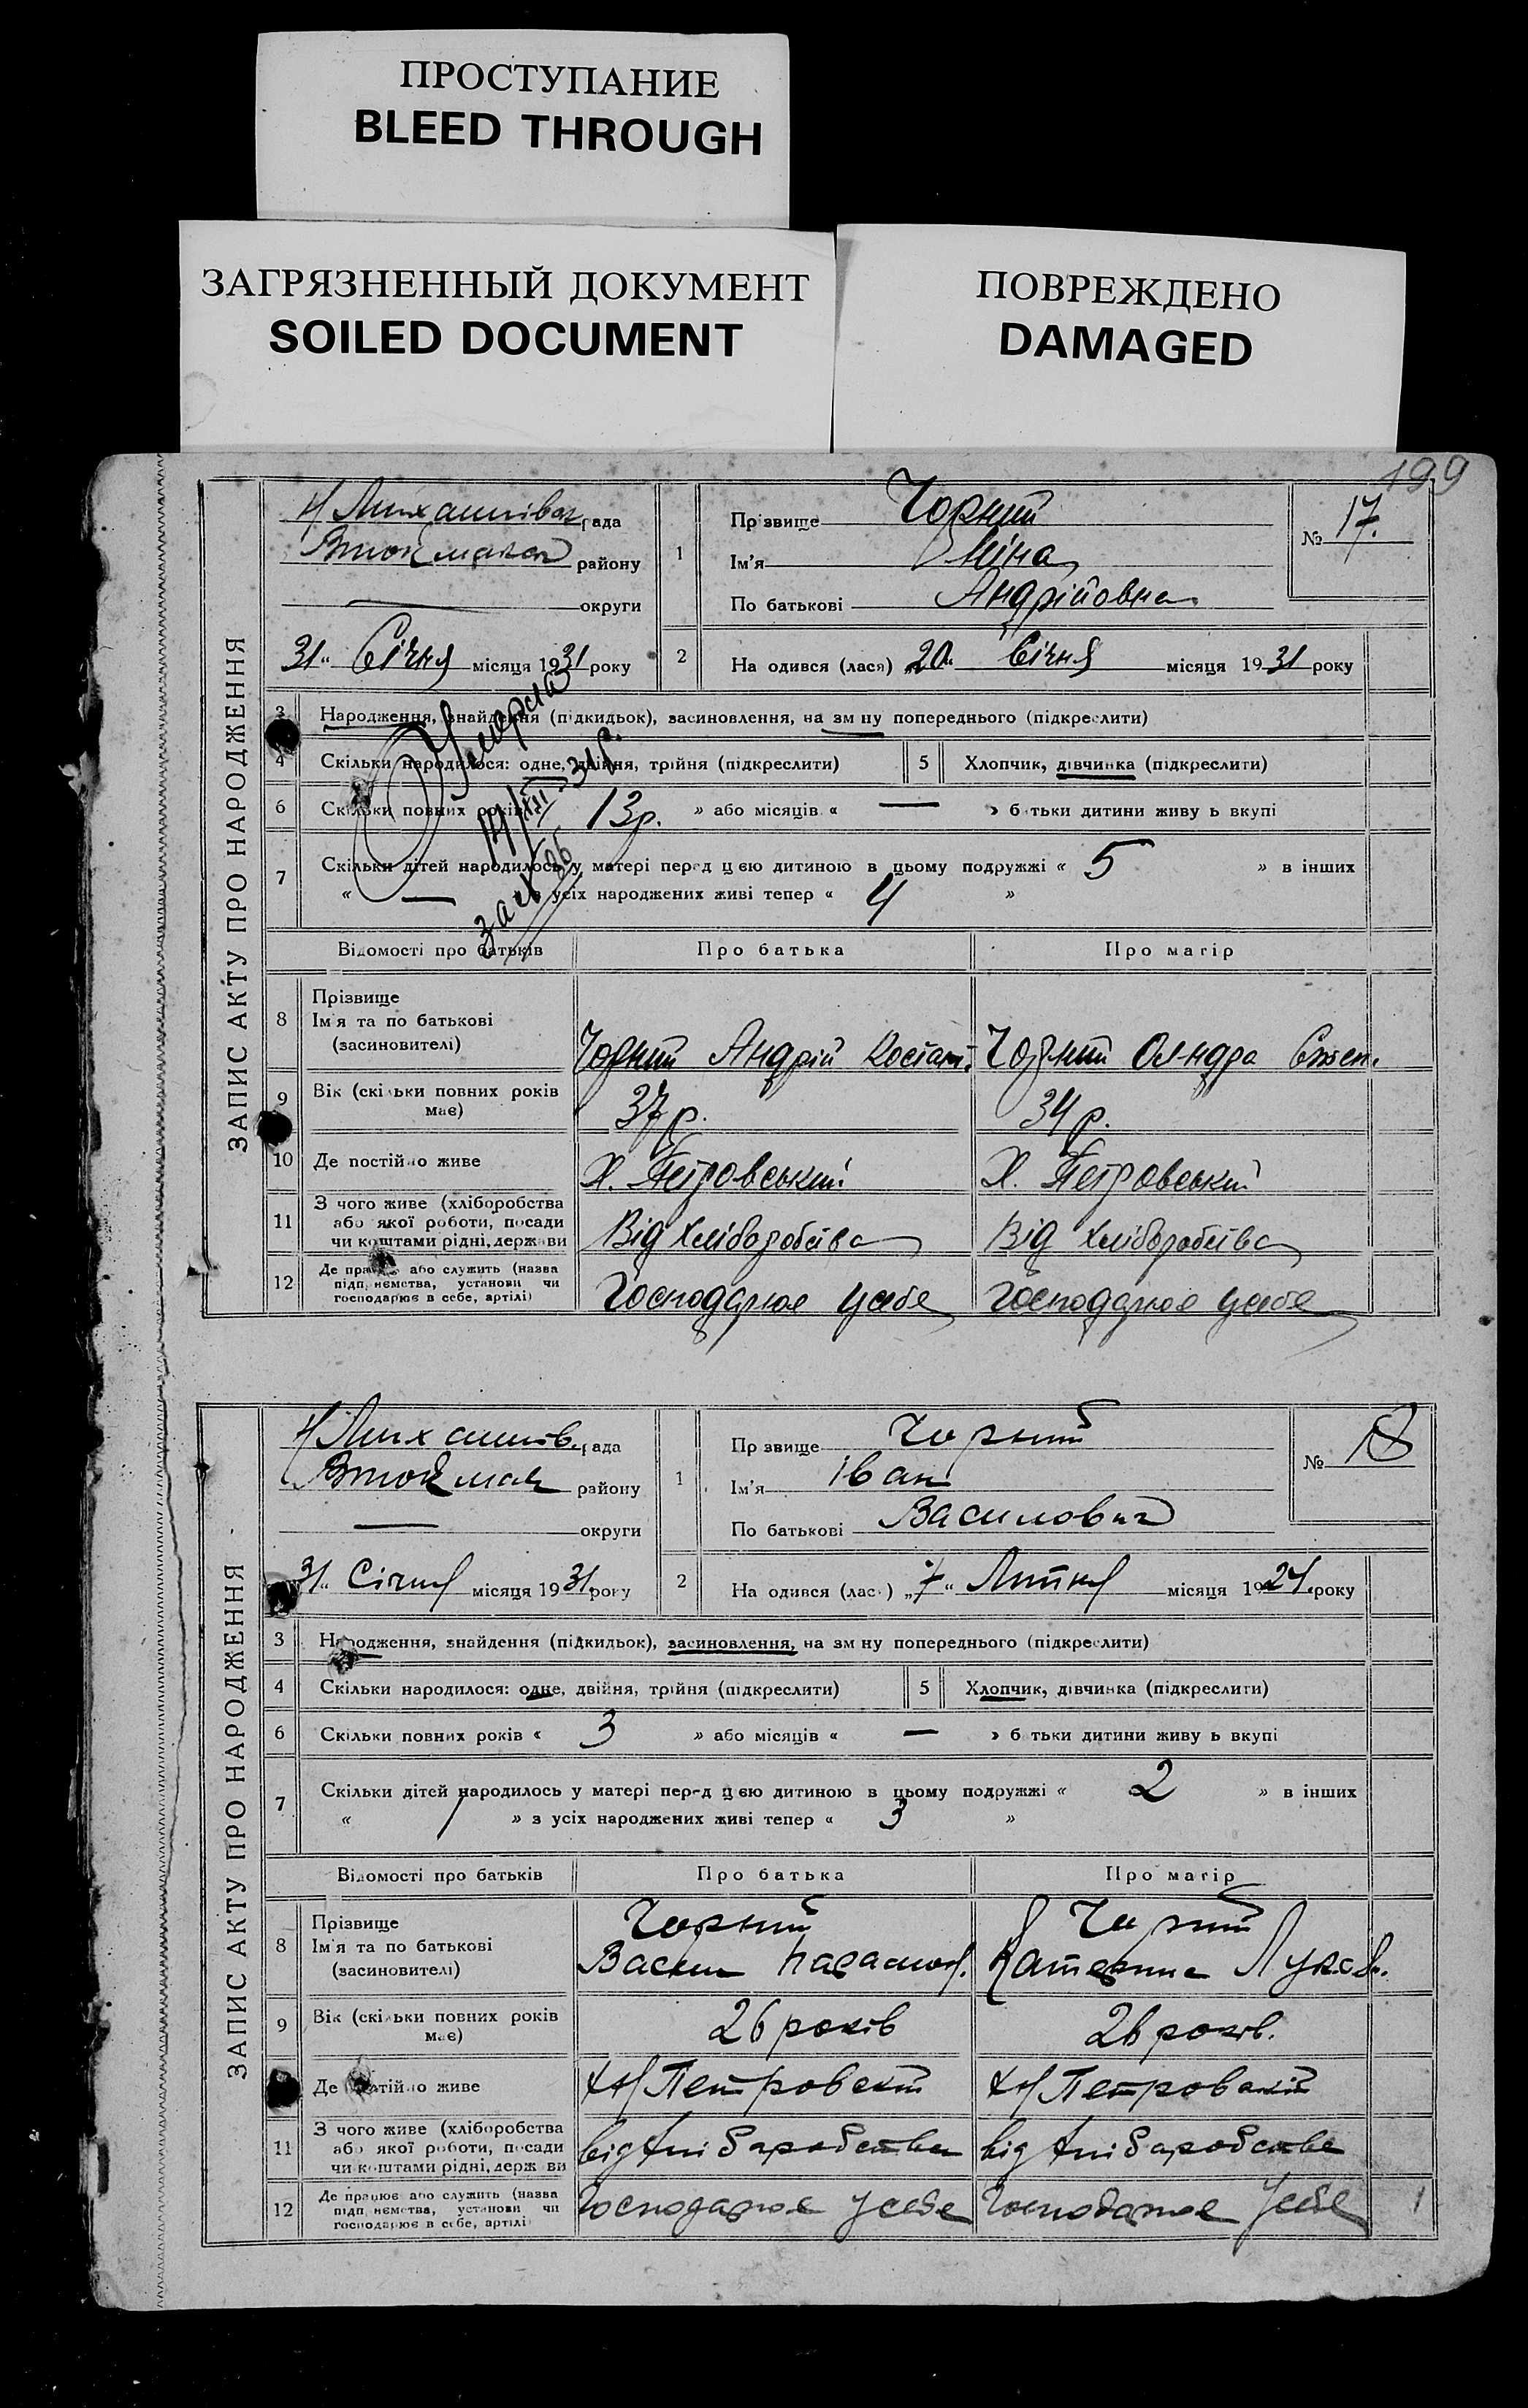 ПРОСТУПАНИЕ
BLEED THROUGH
ЗАГРЯЗНЕННЫЙ ДОКУМЕНТ
SOILED DOCUMENT
ПОВРЕЖДЕНО
DAMAGED
199
ЗАПИС АКТУ ПРО НАРОДЖЕННЯ
рада
району
округи
31 Січня місяця 1931 року
1
Прізвище Чорний
Ім'я Ніна
По батькові Андрійовна
№ 17.
2 На одився (лася) „20“ Січня місяця 1931 року
3 Народження, знайдення (підкидьок), засиновлення, на зм ну попереднього (підкреслити)
4 Скільки народилося: одне, двійня, трійня (підкреслити) 5 Хлопчик, дівчинка (підкреслити)
6 Скільки повних років « 13р. » або місяців « — » б тьки дитини живу ь вкупі
7 Скільки дітей народилось у матері перед цею дитиною в цьому подружжі « 5 » в інших
« — » з усіх народжених живі тепер « 4 »
Відомості про батьків Про батька Про матір
8 Прізвище
Ім'я та по батькові
(засиновителі)
Чорний Андрій Костант. Чорний
9 Вік (скільки повних років має) 37 р. 34 р.
10 Де постійно живе Х. Петровський Х. Петровський
11 З чого живе (хліборобства
або якої роботи, посади
чи коштами рідні, держави
Від Хліборобства Від Хліборобства
12 Де працює або служить (назва
підп иємства, установи чи
господарює в себе, артілі)
Господарює усебе Господарює усебе
ЗАПИС АКТУ ПРО НАРОДЖЕННЯ
рада
району
округи
31 Січня місяця 1931 року
1
Пр звище Чорний
Ім'я Іван
По батькові Василович
№ 18
2 На одився (лас ) „7“ місяця 1924 року
3 Народження, знайдення (підкидьок), засиновлення, на зм ну попереднього (підкреслити)
4 Скільки народилося: одне, двійня, трійня (підкреслити) 5 Хлопчик, дівчинка (підкреслити)
6 Скільки повних років « 3 » або місяців « — » б тьки дитини живу ь вкупі
7 Скільки дітей народилось у матері перед цею дитиною в цьому подружжі « 2 » в інших
« 1 » з усіх народжених живі тепер « 3 »
Відомості про батьків Про батька Про матір
8 Прізвище
Ім'я та по батькові
(засиновителі)
Чорний Чорний
Василь Катерина
9 Вік (скільки повних років має) 26 років 26 років.
10 Де постійно живе Петровский Петровский
11 З чого живе (хліборобства
або якої роботи, посади
чи коштами рідні, держ ви
від Хліборобства від Хліборобства
12 Де працює або служить (назва
підп иємства, установи чи
господарює в себе, артілі
Господарює усебе Господарює усебе